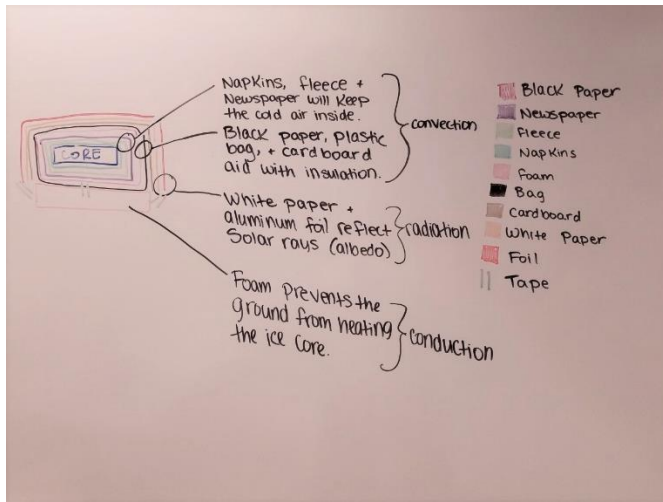 CORE
Napkins, fleece +
Newspaper will keep
the cold air inside.
Black paper, plastic
bag, + cardboard
aid with insulation.
convection
White paper +
aluminum foil reflect
Solar rays (albedo)
radiation
Foam prevents the
ground from heating
the ice core.
conduction
Black Paper
Newspaper
Fleece
Napkins
Foam
Bag
Cardboard
White Paper
Foil
Tape